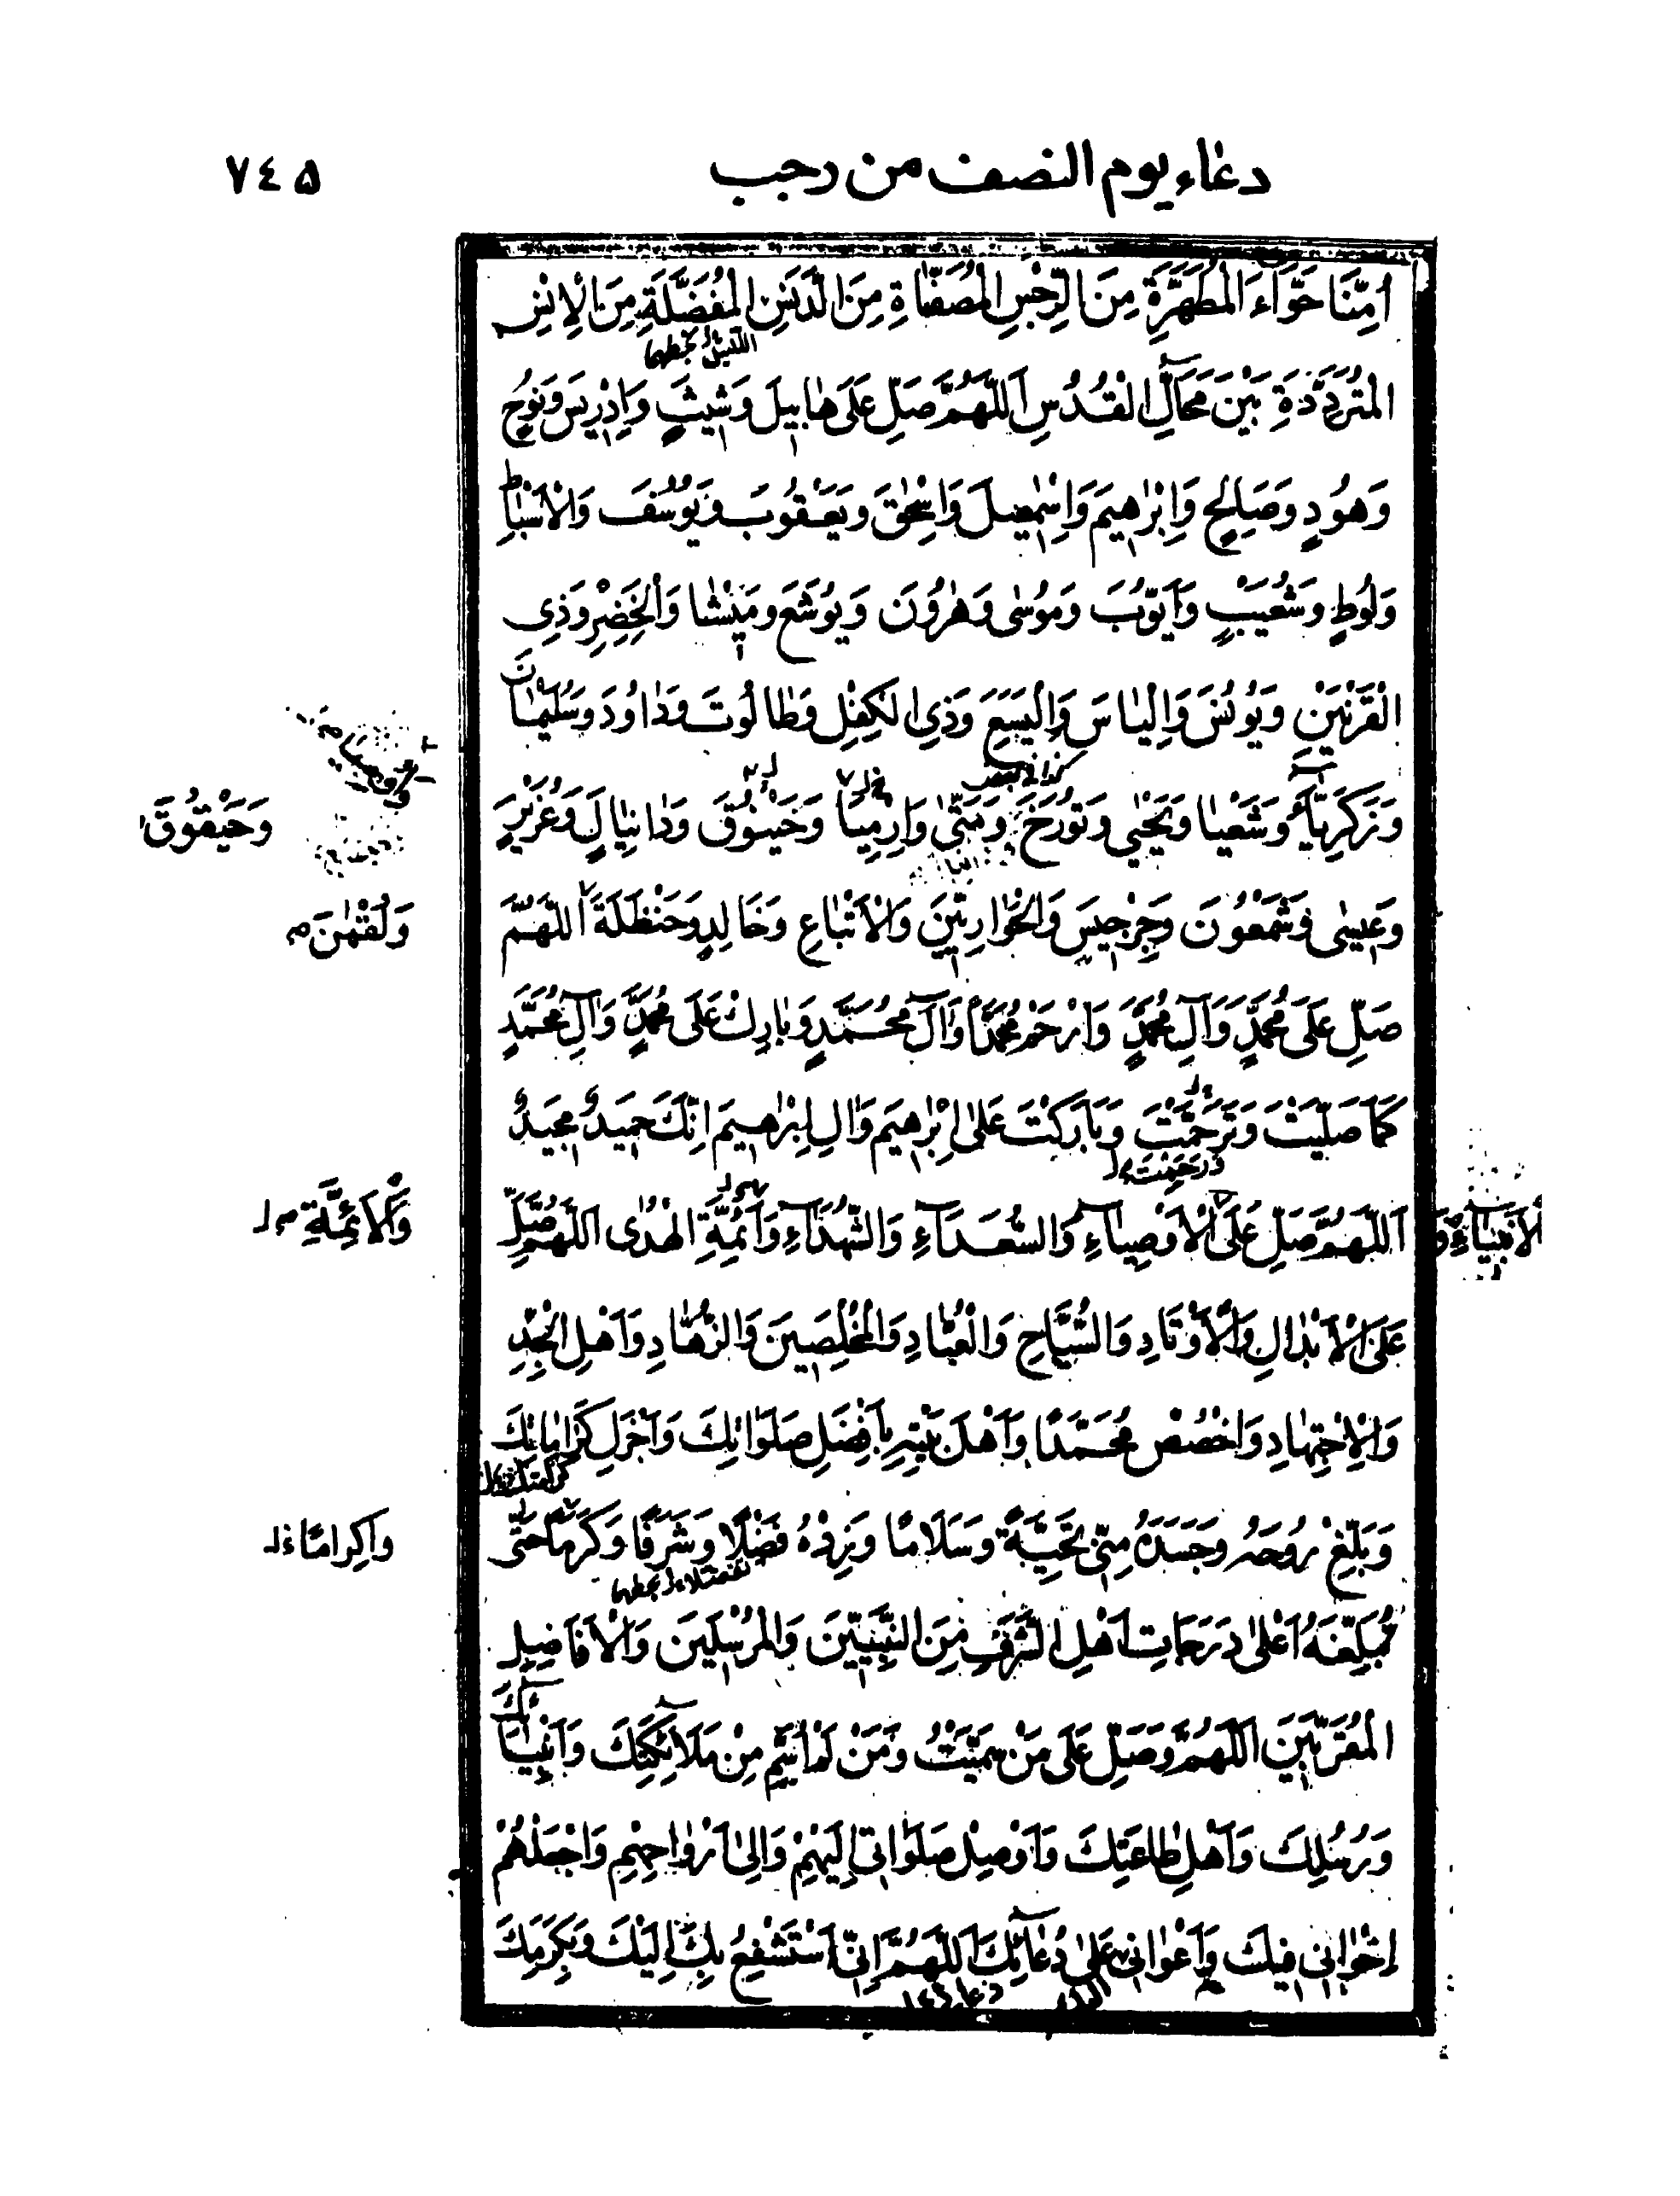 دعاء يوم النصف من رجب
٧٤۵
اُمِّنَا حَوَّاءَ الْمُطَهَّرَةِ مِنَ الرِّجْسِ الْمُصَفَّاةِ مِنَ الدَّنَسِ الْمُفَضَّلَةِ مِنَ الْاِنْسِ
الْمُتَرَدِّدَةِ بَيْنَ مَحَالِّ الْقُدُسِ اَللّٰهُمَّ صَلِّ عَلَى هَابِيلَ وَشِيثٍ وَاِدْرِيسَ وَنُوحٍ
وَهُودٍ وَصَالِحٍ وَاِبْرٰهِيمَ وَاِسْمٰعِيلَ وَاِسْحٰقَ وَيَعْقُوبَ وَيُوسُفَ وَالْاَسْبَاطِ
وَلُوطٍ وَشُعَيْبٍ وَاَيُّوبَ وَمُوسٰى وَهٰرُونَ وَيُوشَعَ وَمِيشَا وَالْخِضْرِ وَذِي
الْقَرْنَيْنِ وَيُونُسَ وَاِلْيَاسَ وَالْيَسَعِ وَذِي الْكِفْلِ وَطَالُوتَ وَدَاوُدَ وَسُلَيْمَانَ
وَزَكَرِيَّا وَشَعْيَا وَيَحْيٰى وَتُورَخَ وَمَتّٰى وَاِرْمِيَا وَحَيْقُوقَ وَدَانِيَالَ وَعُزَيْرٍ
وَحَيْقُوقَ
وَعِيسٰى وَشَمْعُونَ وَجِرْجِيسَ وَالْحَوَارِيِّينَ وَالْاَتْبَاعِ وَخَالِدٍ وَحَنْظَلَةَ اَللّٰهُمَّ
وَلُقْمٰنَ م
صَلِّ عَلَى مُحَمَّدٍ وَآلِ مُحَمَّدٍ وَارْحَمْ مُحَمَّدًا وَآلَ مُحَمَّدٍ وَبَارِكْ عَلَى مُحَمَّدٍ وَآلِ مُحَمَّدٍ
كَمَا صَلَّيْتَ وَتَرَحَّمْتَ وَبَارَكْتَ عَلىٰ اِبْرٰهِيمَ وَالِ اِبْرٰهِيمَ اِنَّكَ حَمِيدٌ مَجِيدٌ
وَرَحِمْتَ
اَللّٰهُمَّ صَلِّ عَلَى الْاَوْصِيَاءِ وَالسُّعَدَاءِ وَالشُّهَدَاءِ وَاَئِمَّةِ الْهُدٰى اَللّٰهُمَّ صَلِّ
الْاَنْبِيَاءِ وَ
وَالْاَئِمَّةِ
عَلَى الْاَبْدَالِ وَالْاَوْتَادِ وَالسُّيَّاحِ وَالْعُبَّادِ وَالْمُخْلِصِينَ وَالزُّهَّادِ وَاَهْلِ الْجِدِّ
وَالْاِجْتِهَادِ وَاخْصُصْ مُحَمَّدًا وَاَهْلَ بَيْتِهِ بِاَفْضَلِ صَلَوَاتِكَ وَاَجْزَلِ كَرَامَاتِكَ
وَبَلِّغْ رُوحَهُ وَجَسَدَهُ مِنّى تَحِيَّةً وَسَلَامًا وَزِدْهُ فَضْلًا وَشَرَفًا وَكَرَمًا حَتّٰى
وَاِكِرامًا
تُبَلِّغَهُ اَعْلىٰ دَرَجَاتِ اَهْلِ الشَّرَفِ مِنَ النَّبِيِّينَ وَالْمُرْسَلِينَ وَالْاَفَاضِلِ
الْمُقَرَّبِينَ اَللّٰهُمَّ وَصَلِّ عَلَى مَنْ سَمَّيْتُ وَمَنْ لَمْ اُسَمِّ مِنْ مَلَائِكَتِكَ وَاَنْبِيَائِكَ
وَرُسُلِكَ وَاَهْلِ طَاعَتِكَ وَاَوْصِلْ صَلَوَاتى اِلَيْهِمْ وَاِلىٰ اَرْوَاحِهِمِ وَاجْعَلْهُمْ
اِخْوَانِى فِيكَ وَاَعْوَانى عَلىٰ دُعَائِكَ اَللّٰهُمَّ اِنّى اَسْتَشْفِعُ بِكَ اِلَيْكَ وَبِكَرَمِكَ